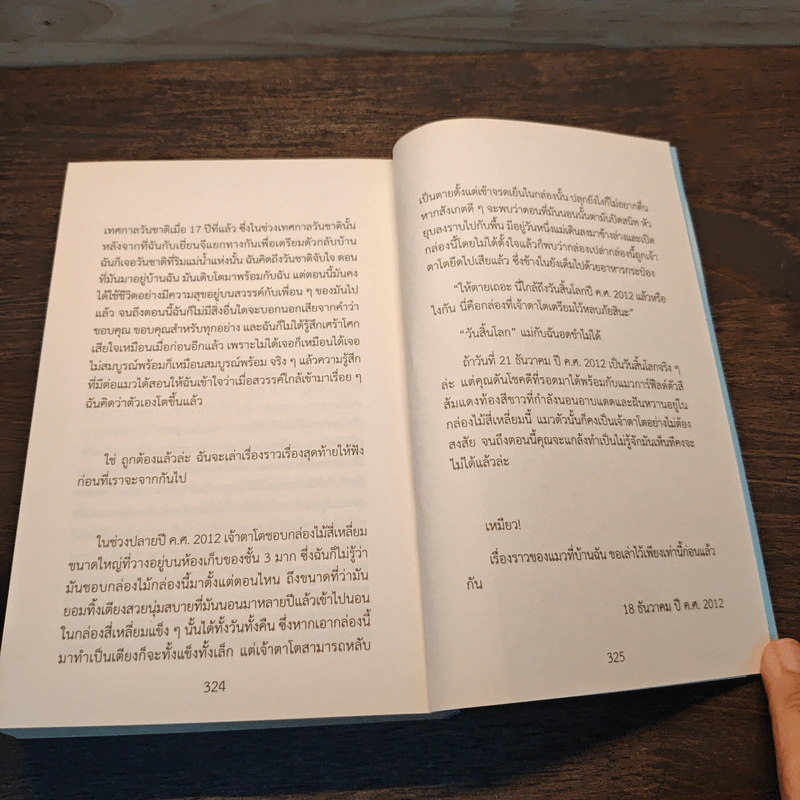 เทศกาลวันชาติเมื่อ 17 ปีที่แล้ว ซึ่งในช่วงเทศกาลวันชาตินั้น
หลังจากที่ฉันกับเยี่ยนจีแยกทางกันเพื่อเตรียมตัวกลับบ้าน
ฉันก็เจอวันชาติที่ริมแม่น้ำแห่งนั้น ฉันคิดถึงวันชาติจับใจ ตอน
ที่มันมาอยู่บ้านฉัน มันเติบโตมาพร้อมกับฉัน แต่ตอนนี้มันคง
ได้ใช้ชีวิตอย่างมีความสุขอยู่บนสวรรค์กับเพื่อน ๆ ของมันไป
แล้ว จนถึงตอนนี้ฉันก็ไม่มีสิ่งอื่นใดจะบอกนอกเสียจากคำว่า
ขอบคุณ ขอบคุณสำหรับทุกอย่าง และฉันก็ไม่ได้รู้สึกเศร้าโศก
เสียใจเหมือนเมื่อก่อนอีกแล้ว เพราะไม่ได้เจอก็เหมือนได้เจอ
ไม่สมบูรณ์พร้อมก็เหมือนสมบูรณ์พร้อม จริง ๆ แล้วความรู้สึก
ที่มีต่อแมวได้สอนให้ฉันเข้าใจว่าเมื่อสวรรค์ใกล้เข้ามาเรื่อย ๆ
ฉันคิดว่าตัวเองโตขึ้นแล้ว
ใช่ ถูกต้องแล้วล่ะ ฉันจะเล่าเรื่องราวเรื่องสุดท้ายให้ฟัง
ก่อนที่เราจะจากกันไป
ในช่วงปลายปี ค.ศ. 2012 เจ้าตาโตชอบกล่องไม้สี่เหลี่ยม
ขนาดใหญ่ที่วางอยู่บนห้องเก็บของชั้น 3 มาก ซึ่งฉันก็ไม่รู้ว่า
มันชอบกล่องไม้กล่องนี้มาตั้งแต่ตอนไหน ถึงขนาดที่ว่ามัน
ยอมทิ้งเตียงสวยนุ่มสบายที่มันนอนมาหลายปีแล้วเข้าไปนอน
ในกล่องสี่เหลี่ยมแข็ง ๆ นั้นได้ทั้งวันทั้งคืน ซึ่งหากเอากล่องนี้
มาทำเป็นเตียงก็จะทั้งแข็งทั้งเล็ก แต่เจ้าตาโตสามารถหลับ
324
เป็นตายตั้งแต่เช้าจรดเย็นในกล่องนั้น ปลุกยังไงก็ไม่อยากตื่น
หากสังเกตดี ๆ จะพบว่าตอนที่มันนอนนั้นตามันปิดสนิท หัว
ยุบลงราบไปกับพื้น มีอยู่วันหนึ่งแม่เดินลงมาข้างล่างและเปิด
กล่องนี้โดยไม่ได้ตั้งใจแล้วก็พบว่ากล่องเปล่ากล่องนี้ถูกเจ้า
ตาโตยึดไปเสียแล้ว ซึ่งข้างในยังเต็มไปด้วยอาหารกระป๋อง
“ให้ตายเถอะ นี่ใกล้ถึงวันสิ้นโลกปี ค.ศ. 2012 แล้วหรือ
ไงกัน นี่คือกล่องที่เจ้าตาโตเตรียมไว้หลบภัยสินะ”
“วันสิ้นโลก” แม่กับฉันอดขำไม่ได้
ถ้าวันที่ 21 ธันวาคม ปี ค.ศ. 2012 เป็นวันสิ้นโลกจริง ๆ
ล่ะ แต่คุณดันโชคดีที่รอดมาได้พร้อมกับแมวการ์ฟิลด์ตัวสี
ส้มแดงท้องสีขาวที่กำลังนอนอาบแดดและฝันหวานอยู่ใน
กล่องไม้สี่เหลี่ยมนี้ แมวตัวนั้นก็คงเป็นเจ้าตาโตอย่างไม่ต้อง
สงสัย จนถึงตอนนี้คุณจะแกล้งทำเป็นไม่รู้จักมันเห็นทีคงจะ
ไม่ได้แล้วล่ะ
เหมียว!
เรื่องราวของแมวที่บ้านฉัน ขอเล่าไว้เพียงเท่านี้ก่อนแล้ว
กัน
18 ธันวาคม ปี ค.ศ. 2012
325